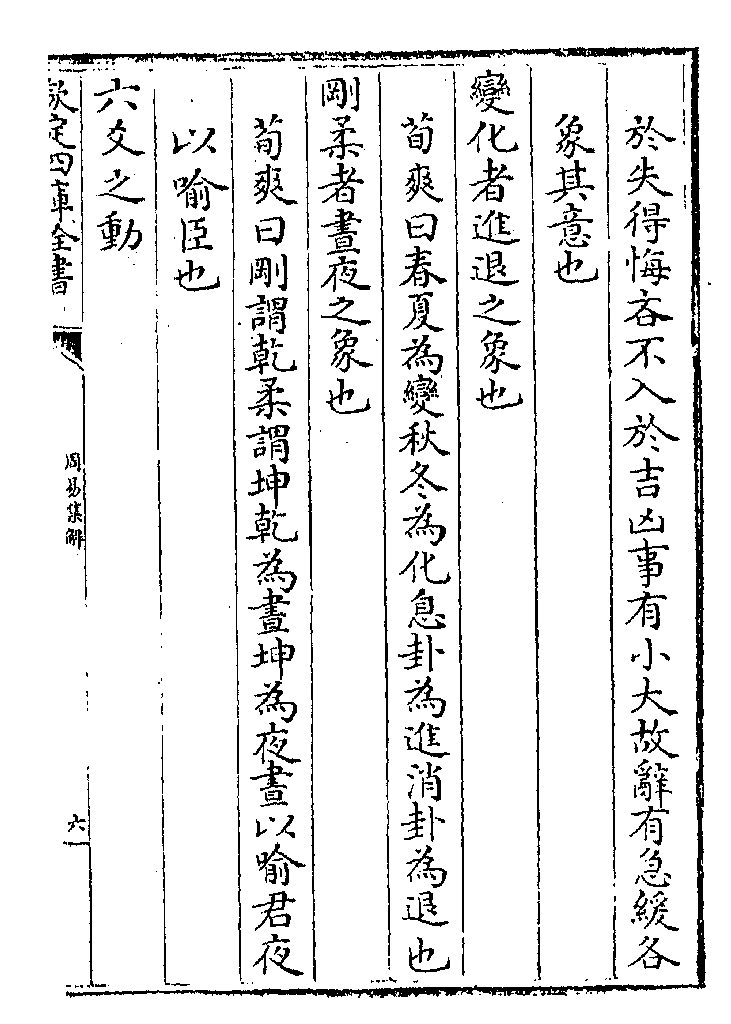 於失得悔吝不入於吉凶事有小大故辭有急緩各
象其意也
變化者進退之象也
荀爽曰春夏為變秋冬為化息卦為進消卦為退也
剛柔者晝夜之象也
荀爽曰剛謂乾柔謂坤乾為晝坤為夜晝以喻君夜
以喻臣也
六爻之動
欽定四庫全書
周易集解
六